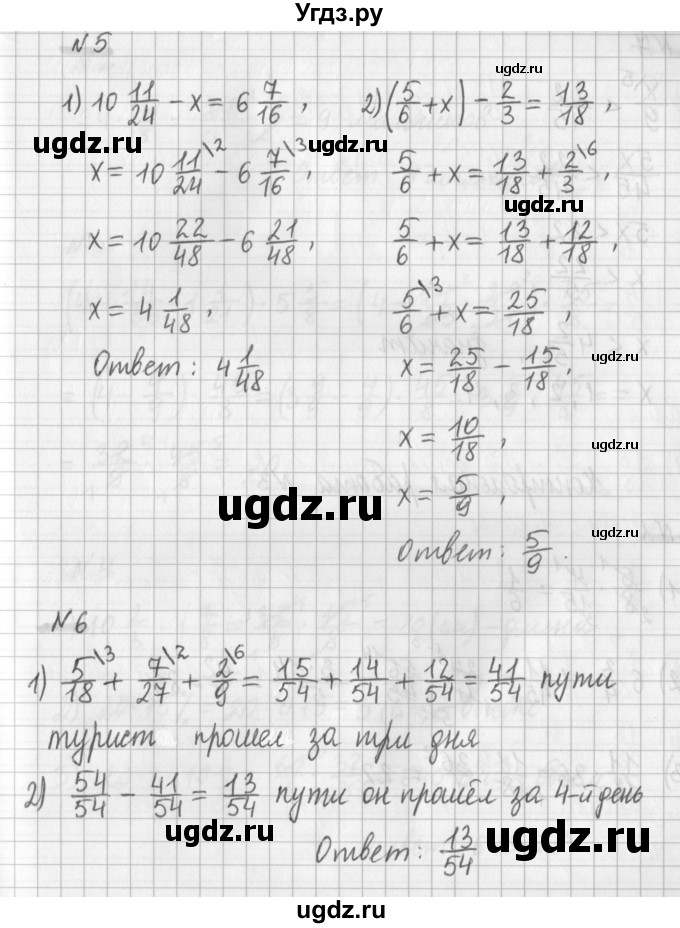 Угдз.ру
N 5
1) 10 11/24 - x = 6 7/16 ,
ugdz.ru
x = 10 11/24\2 - 6 7/16\3 ,
x = 10 22/48 - 6 21/48 ,
x = 4 1/48 ,
Ответ: 4 1/48
ugdz.ru
2) (5/6 + x) - 2/3 = 13/18 ,
ugdz.ru
5/6 + x = 13/18 + 2/3\6
ugdz.ru
5/6 + x = 13/18 + 12/18
5/6\3 + x = 25/18 ,
ugdz.ru
x = 25/18 - 15/18 ,
x = 10/18 ,
ugdz.ru
ugdz.ru
x = 5/9 ,
ugdz.ru
Ответ: 5/9 .
N 6
1) 5/18\3 + 7/27\2 + 2/9\6 = 15/54 + 14/54 + 12/54 = 41/54 пути
турист прошел за три дня
2) 54/54 - 41/54 = 13/54 пути он прошёл за 4-й день
ugdz.ru
ugdz.ru
Ответ: 13/54
ugdz.ru